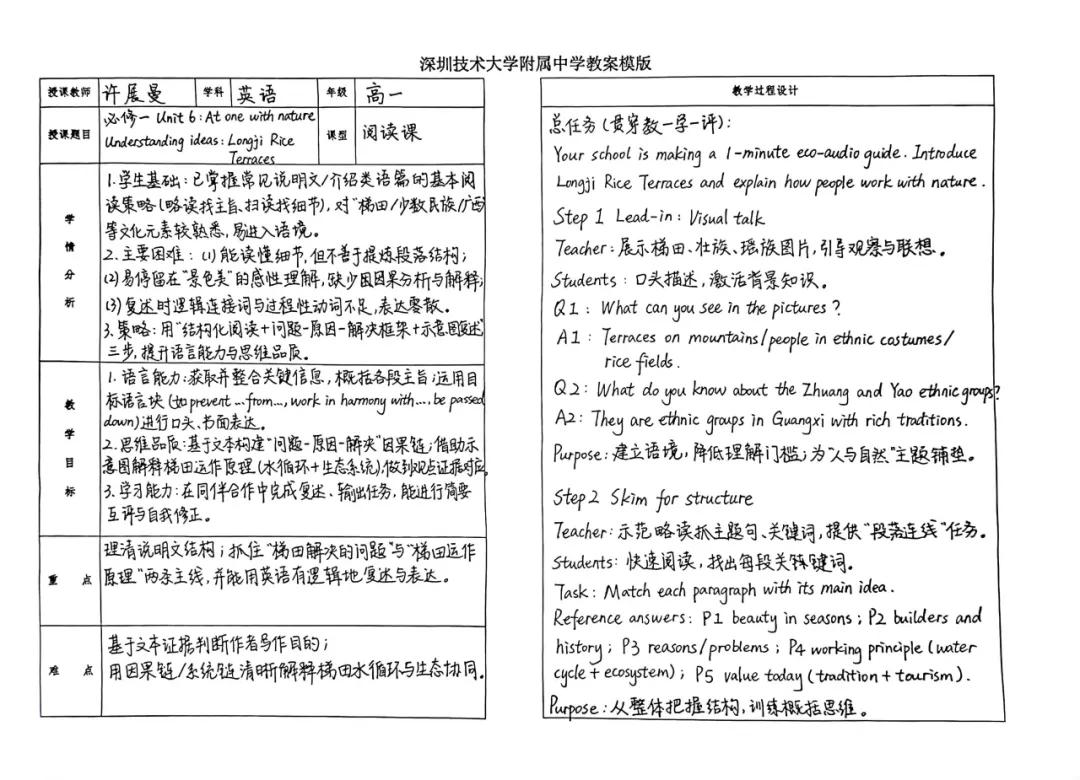 深圳技术大学附属中学教案模版
授课教师 许展曼 学科 英语 年级 高一
授课题目 必修一 Unit 6 : At one with nature
Understanding ideas : Longji Rice
Terraces
课型 阅读课
学情分析
1.学生基础：已掌握常见说明文/介绍类语篇的基本阅
读策略(略读找主旨、扫读找细节)，对“梯田/少数民族/广西”
等文化元素较熟悉，易进入语境。
2.主要困难：(1)能读懂细节，但不善于提炼段落结构；
(2)易停留在“景色美”的感性理解，缺少因因果分析与解释；
(3)复述时逻辑连接词与过程性动词不足，表达零散。
3.策略：用“结构化阅读+问题-原因-解决框架+示意图复述”
三步，提升语言能力与思维品质。
教学目标
1.语言能力：获取并整合关键信息，概括各段主旨；运用目
标语言块(如prevent ...from..., work in harmony with..., be passed
down)进行口头、书面表达。
2.思维品质：基于文本构建“问题-原因-解决”因果链；借助示
意图解释梯田运作原理(水循环+生态系统)，做到观点证据对应。
3.学习能力：在同伴合作中完成复述、输出任务，能进行简要
互评与自我修正。
重点
理清说明文结构；抓住“梯田解决的问题”与“梯田运作
原理”两条主线，并能用英语有逻辑地复述与表达。
难点
基于文本证据判断作者写作目的；
用因果链/系统链清晰解释梯田水循环与生态协同。
教学过程设计
总任务(贯穿教—学—评)：
Your school is making a 1-minute eco-audio guide. Introduce
Longji Rice Terraces and explain how people work with nature.
Step 1 Lead-in : Visual talk
Teacher: 展示梯田、壮族、瑶族图片，引导观察与联想。
Students : 口头描述，激活背景知识。
Q1 : What can you see in the pictures ?
A1 : Terraces on mountains/people in ethnic costumes/
rice fields.
Q2 : What do you know about the Zhuang and Yao ethnic groups?
A2 : They are ethnic groups in Guangxi with rich traditions.
Purpose : 建立语境，降低理解门槛；为“人与自然”主题铺垫。
Step 2 Skim for structure
Teacher: 示范略读抓主题句、关键词，提供“段落连线”任务。
Students: 快速阅读，找出每段关键词。
Task : Match each paragraph with its main idea.
Reference answers : P1 beauty in seasons ; P2 builders and
history ; P3 reasons/problems ; P4 working principle (water
cycle + ecosystem) ; P5 value today (tradition + tourism).
Purpose : 从整体把握结构，训练概括思维。